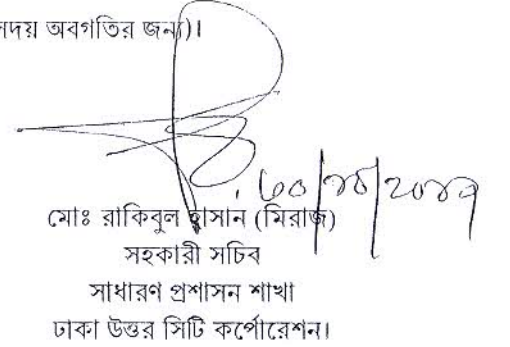 সদয় অবগতির জন্য)।
মোঃ রাকিবুল হাসান (মিরাজ)
সহকারী সচিব
সাধারণ প্রশাসন শাখা
ঢাকা উত্তর সিটি কর্পোরেশন।